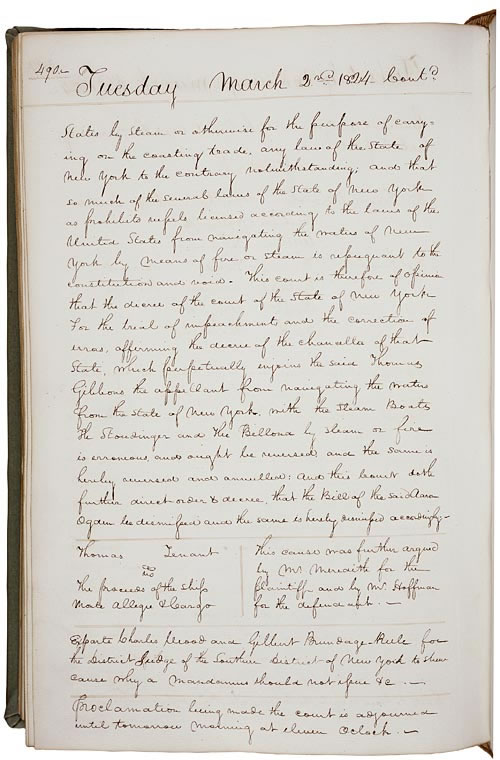 490
Tuesday March 2nd 1824 Contd
States by steam or otherwise for the purpose of carry=
ing on the coasting trade, any law of the State of
New York to the contrary notwithstanding; and that
so much of the several laws of the State of New York
as prohibits vessels licensed according to the laws of the
United States from navigating the waters of New
York by means of fire or steam is repugnant to the
constitution and void. This court is therefore of opinion
that the decree of the court of the State of New York
For the trial of impeachment and the correction of
erros, affirming the decree of the chancellor of that
State, which perpetually enjoins the said Thomas
Gibbons the appellant from navigating the waters
from the State of New York, with the Steam Boats
The Stoudinger and The Bellona by steam or fire
is erroneous and ought be reversed and the same is
hereby reversed and annulled: And this Court doth
further direct order & decree, that the Bill of the said Aaron
Ogden be dismissed and the same is hereby dismissed accordingly.
Thomas Tenant
vs
The proceeds of the Ship
& Cargo
This cause was further argued
by Mr. Meredith for the
plaintiff and by Mr. Hoffman
for the defendant. —
Exparte Charles Wood and Gilbert Brundage Rule for
the District Judge of the Southern District of New York to shew
cause why a Mandamus should not issue &c. —
Proclamation being made the court is adjourned
until tomorrow morning at eleven Oclock. —